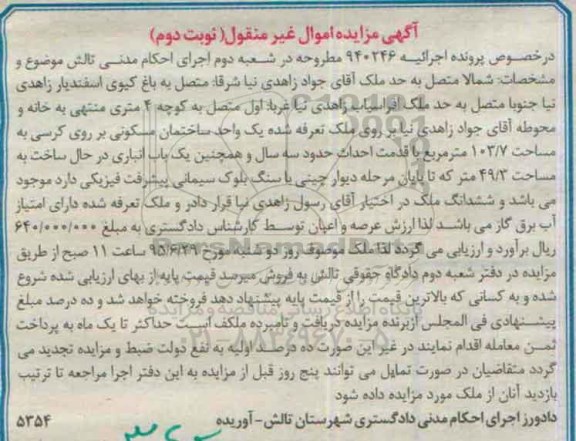 آگهی مزایده اموال غیر منقول( نوبت دوم)
درخصوص پرونده اجرائیه ۹۴۰۲۴۶ مطروحه در شعبه دوم اجرای احکام مدنی تالش موضوع و
مشخصات: شمالا متصل به حد ملک آقای جواد زاهدی نیا شرقا: متصل به باغ کیوی اسفندیار زاهدی
نیا جنوبا متصل به حد ملک افراسیاب زاهدی نیا غربا: اول متصل به کوچه ۴ متری منتهی به خانه و
محوطه آقای جواد زاهدی نیا بر روی ملک تعرفه شده یک واحد ساختمان مسکونی بر روی کرسی به
مساحت ۱۰۳/۷ مترمربع با قدمت احداث حدود سه سال و همچنین یک باب انباری در حال ساخت به
مساحت ۴۹/۳ متر که تا پایان مرحله دیوار چینی با سنگ بلوک سیمانی پیشرفت فیزیکی دارد موجود
می باشد و ششدانگ ملک در اختیار آقای رسول زاهدی نیا قرار دادر و ملک تعرفه شده دارای امتیاز
آب برق گاز می باشد لذا ارزش عرصه و اعیان توسط کارشناس دادگستری به مبلغ ۶۴۰/۰۰۰/۰۰۰
ریال برآورد و ارزیابی می گردد لذا ملک موصوف روز دو شنبه مورخ ۹۵/۶/۲۹ ساعت ۱۱ صبح از طریق
مزایده در دفتر شعبه دوم دادگاه حقوقی تالش به فروش میرسد قیمت پایه از بهای ارزیابی شده شروع
شده و به کسانی که بالاترین قیمت را از قیمت پایه پیشنهاد دهد فروخته خواهد شد و ده درصد مبلغ
پیشنهادی فی المجلس ازبرنده مزایده دریافت و نامبرده ملکف است حداکثر تا یک ماه به پرداخت
ثمن معامله اقدام نمایند در غیر این صورت ده درصد اولیه به نفع دولت ضبط و مزایده تجدید می
گردد متقاضیان در صورت تمایل می توانند پنج روز قبل از مزایده به این دفتر اجرا مراجعه تا ترتیب
بازدید آنان از ملک مورد مزایده داده شود
دادورز اجرای احکام مدنی دادگستری شهرستان تالش - آوریده ۵۳۵۴